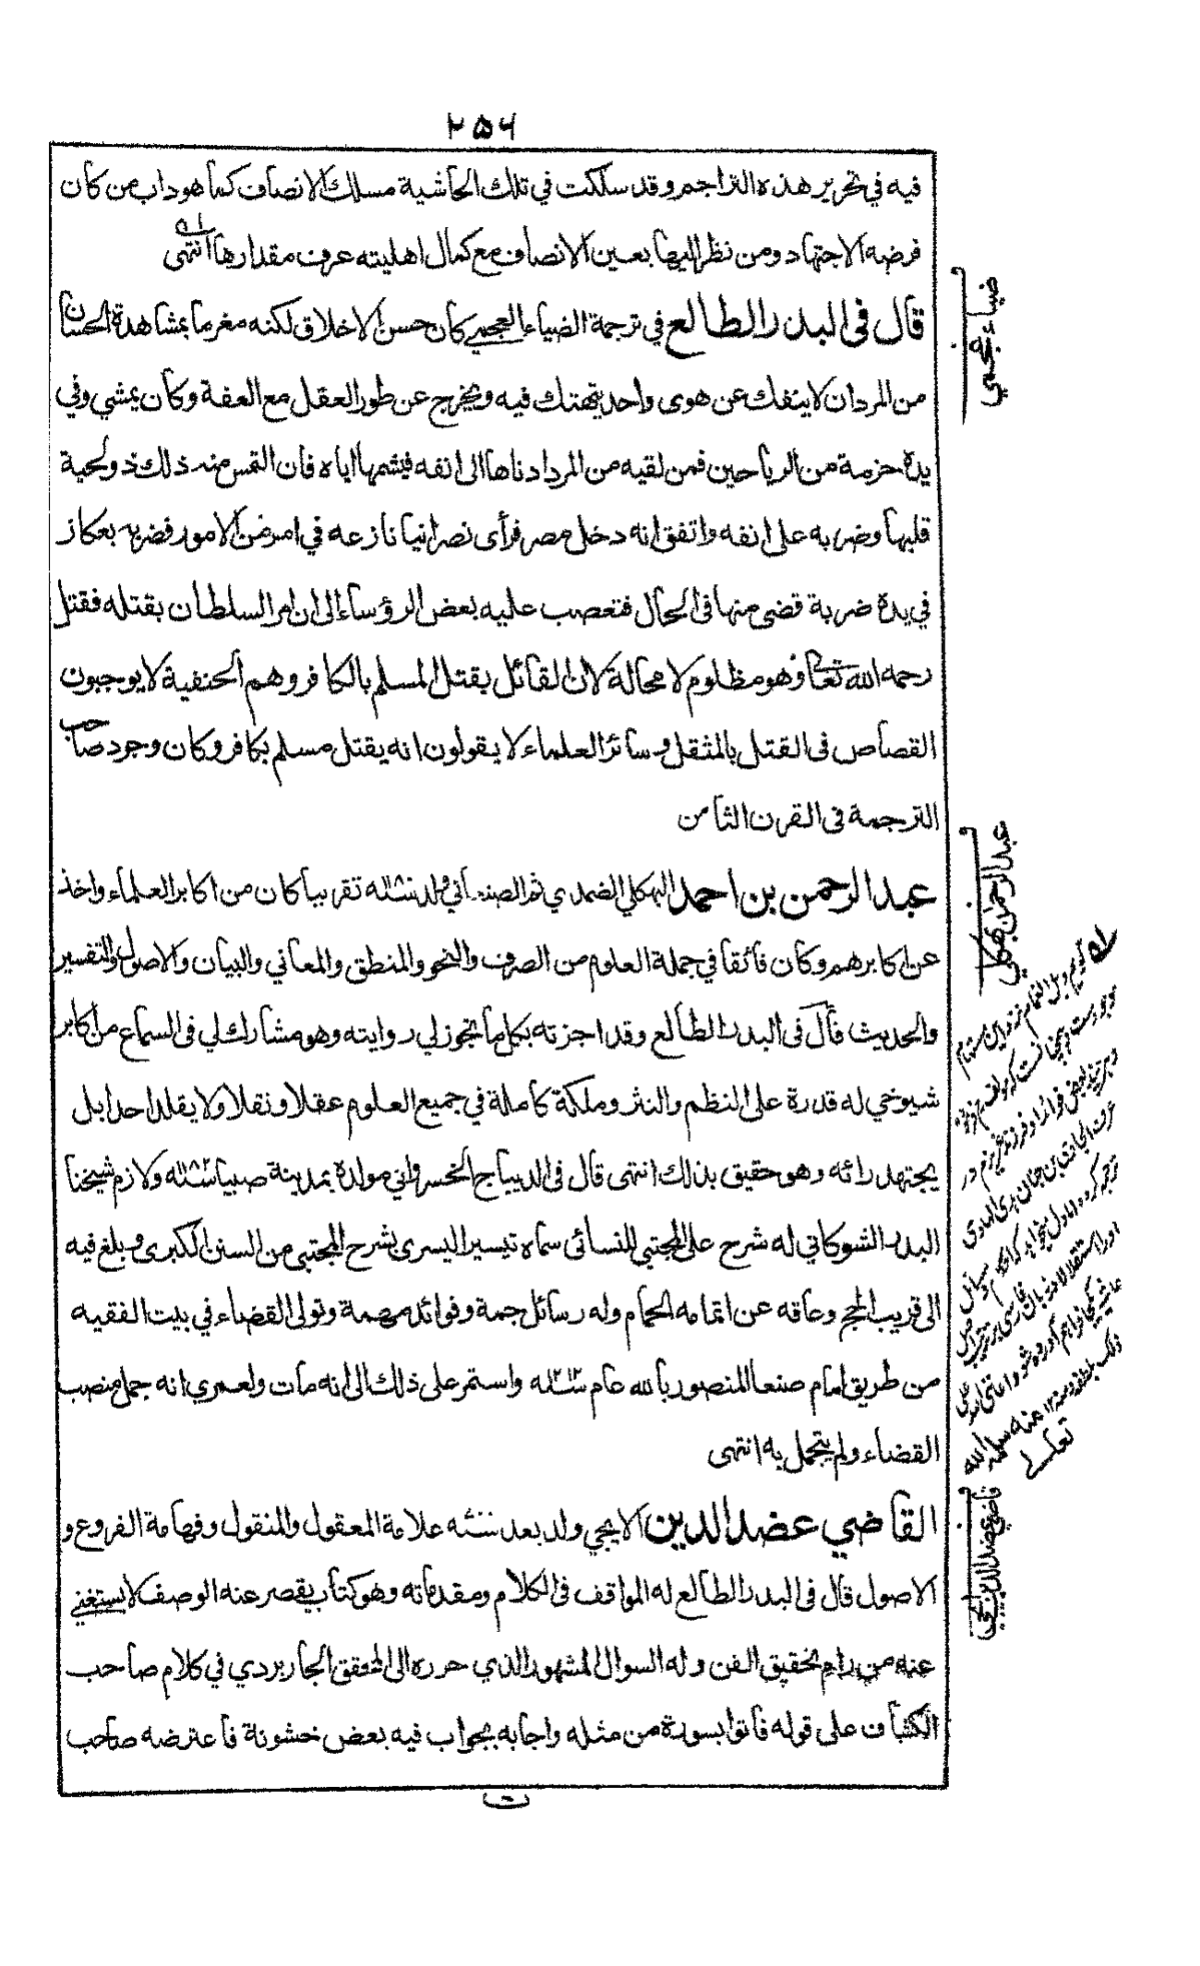 ٢٥٦
فيه في تحرير هذه التراجم وقد سلكت في تلك الحاشية مسلك الانصاف كما هو داب من كان
فرضه الاجتهاد ومن نظر اليها بعين الانصاف مع كمال اهليته عرف مقدارها انتهى
قال في البدر الطالع في ترجمة الضياء العجمي كان حسن الاخلاق لكنه مغرما بمشاهدة الحسان
من المردان لا ينفك عن هوى واحد يتهتك فيه ويخرج عن طور العقل مع العفة وكان يمشي وفي
يده حزمة من الرياحين فمن لقيه من المرد ادناها الى انفه فيشمها اياه فان التمس منه ذلك ذو لحية
قلبها وضربه على انفه واتفق انه دخل مصر فرأى نصرانيا نازعه في امر من الامور فضربه بعكاز
في يده ضربة قضى منها في الحال فتعصب عليه بعض الرؤساء الى ان امر السلطان بقتله فقتل
رحمه الله تعالى وهو مظلوم لا محالة لان القائل بقتل المسلم بالكافر وهم الحنفية لا يوجبون
القصاص في القتل بالمثقل وسائر العلماء لا يقولون انه يقتل مسلم بكافر وكان وجود صاحب
الترجمة في القرن الثامن
عبد الرحمن بن احمد البهكلي الضمدي ثم الصنعاني ولد تقريبا كان من اكابر العلماء واخذ
عن اكابرهم وكان فائقا في جملة العلوم من الصرف والنحو والمنطق والمعاني والبيان والاصول والتفسير
والحديث قال في البدر الطالع وقد اجزته بكل ما تجوز لي روايته وهو مشارك لي في السماع من اكابر
شيوخي له قدرة على النظم والنثر وملكة كاملة في جميع العلوم عقلا ونقلا ولا يقلد احدا بل
يجتهد رائه وهو حقيق بذلك انتهى قال في الديباج الخسرواني مولده بمدينة صبيا ولازم شيخنا
البدر الشوكاني له شرح على المجتبي للنسائى سماه تيسير اليسرى بشرح المجتبى من السنن الكبرى وبلغ فيه
الى قريب الحج وعاقه عن اتمامه الحمام وله رسائل جمة وفوائد مهمة وتولى القضاء في بيت الفقيه
من طريق امام صنعا المنصور بالله عام واستمر على ذلك الى انه مات ولعمري انه جمل منصب
القضاء ولم يتجمل به انتهى
القاضي عضد الدين الايجي ولد بعد علامة المعقول والمنقول وفهامة الفروع و
الاصول قال في البدر الطالع له المواقف في الكلام ومقدماته وهو كتاب يقصر عنه الوصف لا يستغني
عنه من رام تحقيق الفن وله السوال المشهور الذي حرره الى المحقق الجاربردي في كلام صاحب
الكشاف على قوله فاتوا بسورة من مثله واجابه بجواب فيه بعض خشونة فاعترضه صاحب
ضياء عجمي
عبد الرحمن بهكلي
قاضي عضد الدين ايجي